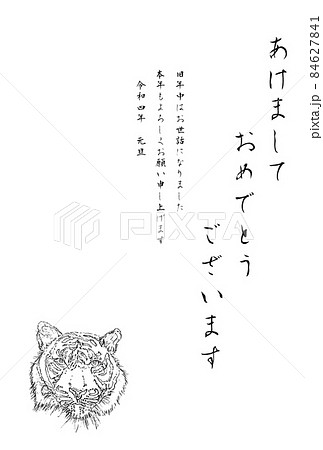 あけまして
おめでとう
ございます
旧年中はお世話になりました
本年もよろしくお願い申し上げます
令和四年 元旦
PIXTA
pixta.jp - 84627841